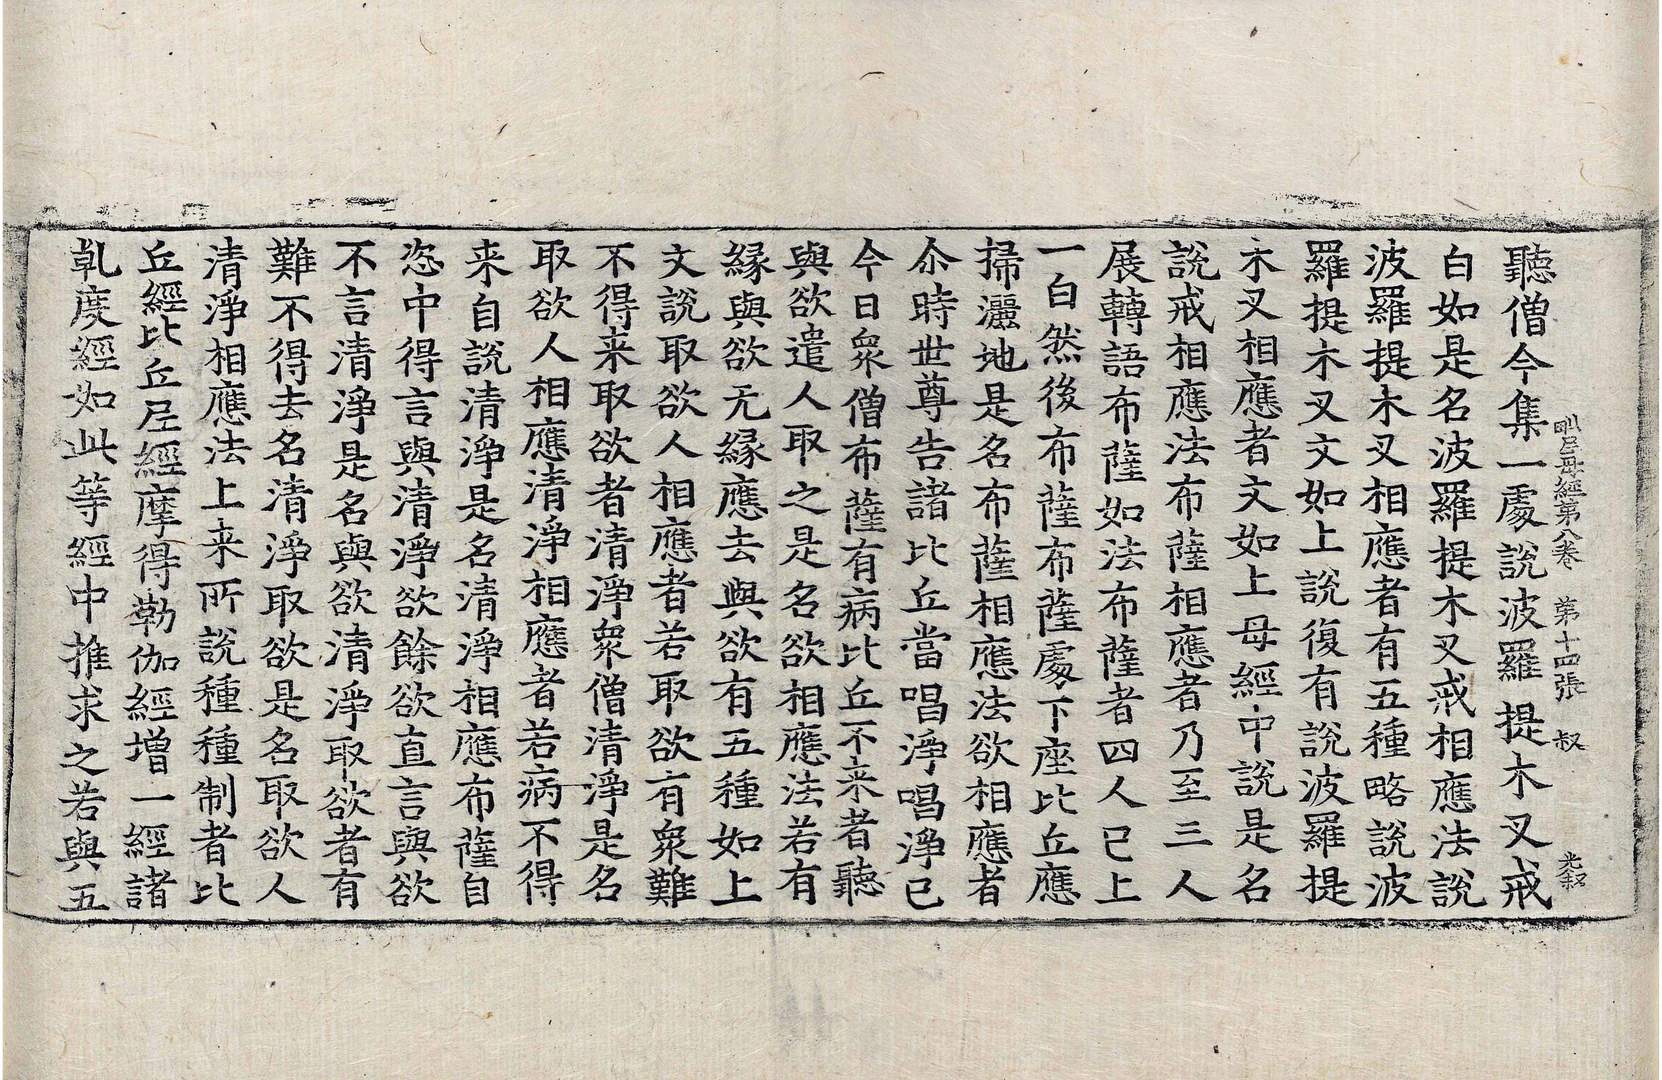 毗尼母經第八卷　第十四張　叔
光叙
聽僧今集一處說波羅提木叉戒
白如是名波羅提木叉戒相應法說
波羅提木叉相應者有五種略說波
羅提木叉文如上說復有說波羅提
木叉相應者文如上母經中說是名
說戒相應法布薩相應者乃至三人
展轉語布薩如法布薩者四人已上
一白然後布薩布薩處下座比丘應
掃灑地是名布薩相應法欲相應者
尒時世尊告諸比丘當唱淨唱淨已
今日衆僧布薩有病比丘不来者聽
與欲遣人取之是名欲相應法若有
緣與欲无緣應去與欲有五種如上
文說取欲人相應者若取欲有衆難
不得来取欲者清淨衆僧清淨是名
取欲人相應清淨相應者若病不得
来自說清淨是名清淨相應布薩自
恣中得言與清淨欲餘欲直言與欲
不言清淨是名與欲清淨取欲者有
難不得去名清淨取欲是名取欲人
清淨相應法上来所說種種制者比
丘經比丘尼經摩得勒伽經增一經諸
犍度經如此等經中推求之若與五